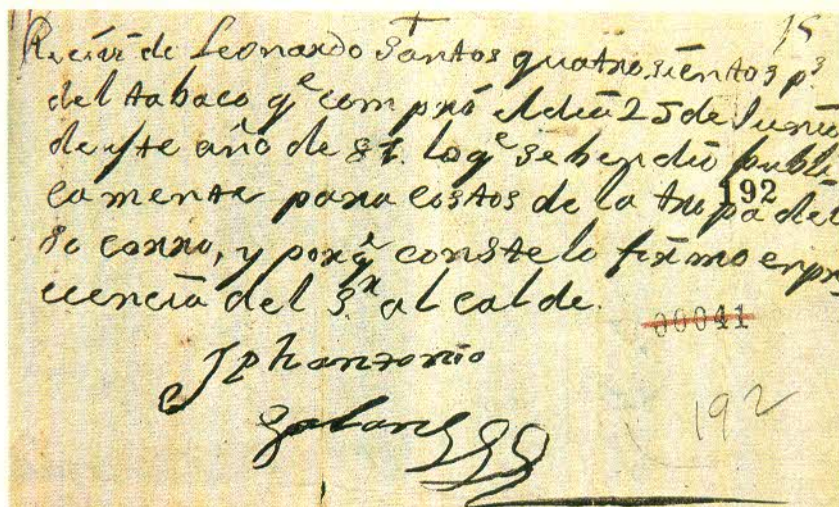 + 15
Recivi de Leonardo Santos quatrosientos p.s
del tabaco q.e compró el dia 25 de Junio
de este año de 81. lo q.e se bendió publi
camente para costos de la tropa del
192
so corro, y porq.e conste lo firmo enpre
cencia del S.r alcalde.
00041
Jph antonio
galan
192